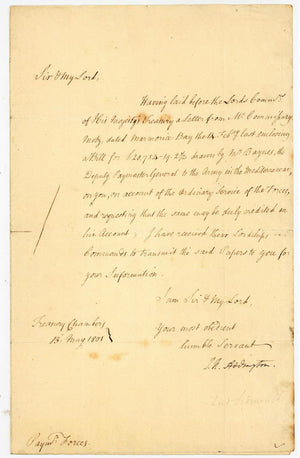 Sir & My Lord,
Having laid before the Lords Commrs
of His Majesty's Treasury a Letter from Mr Commissary
Motz, dated Marmorice Bay the Feby last enclosing
a Bill for drawn by Mr Baynes, the
Deputy Paymaster General to the Army in the Mediterranean,
on you, on account of the Ordinary Service of the Forces,
and requesting that the same may be duly credited in
his Account; I have received their Lordships
Commands to transmit the said Papers to you for
your Information.
I am Sir & My Lord
Your most obedient
humble Servant
Treasury Chambers
13 May 1801
Addington.
Paymr Forces.